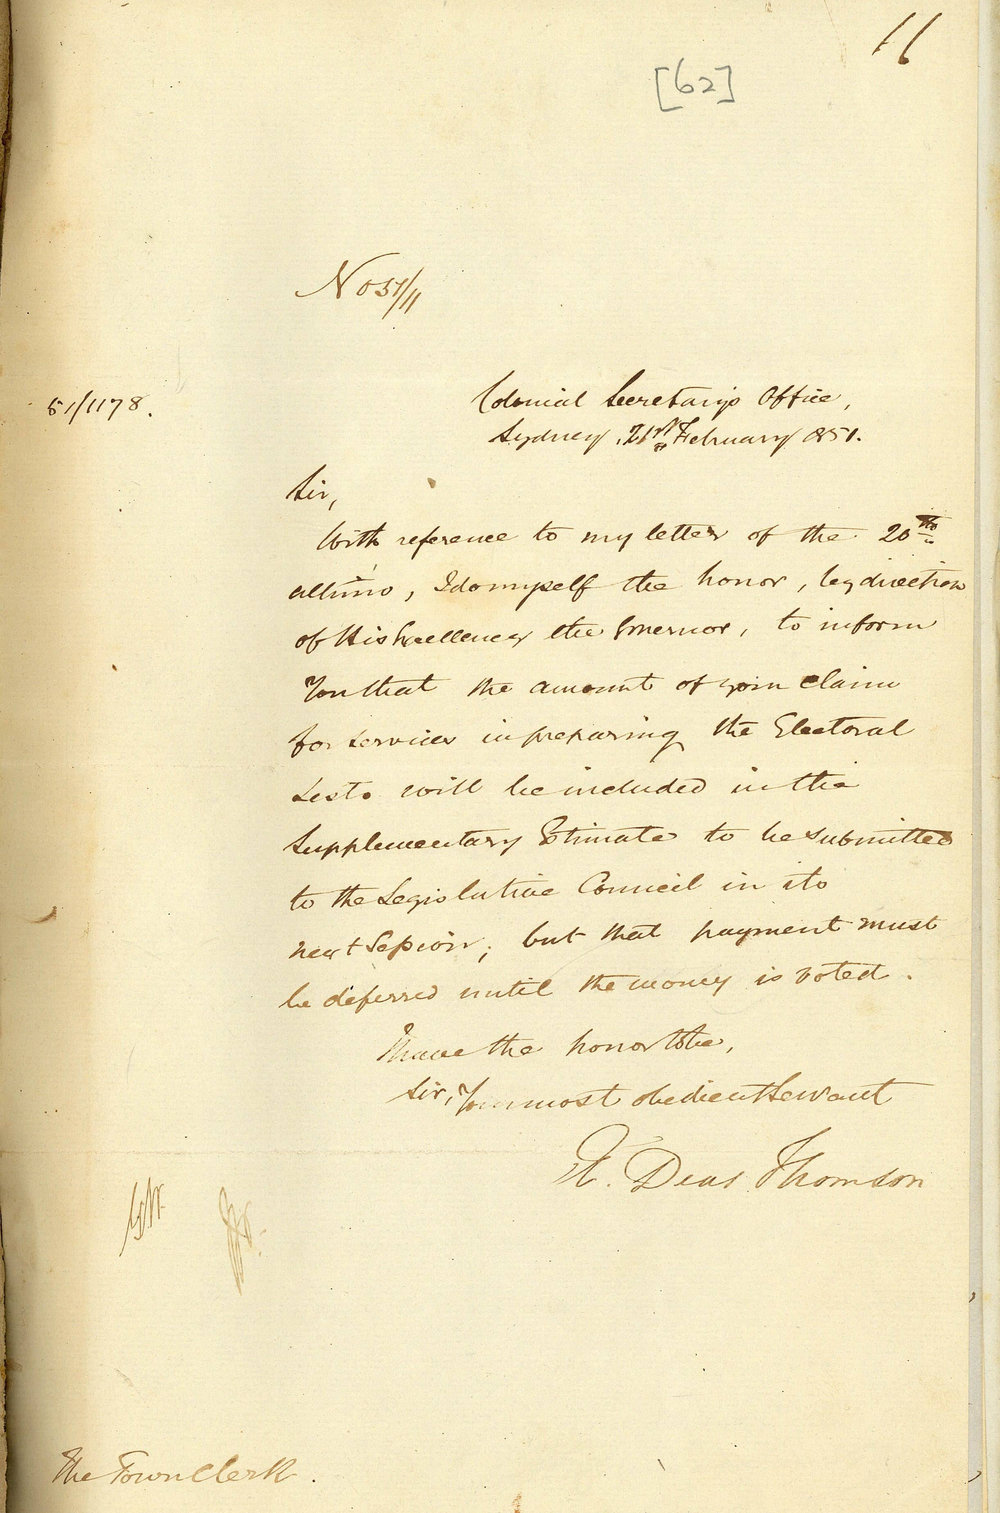 11
[62]
No 51/11
51/1178.
Colonial Secretary's Office,
Sydney, 21st February 1851.
Sir,
With reference to my letter of the 20th
ultimo, I do myself the honor, by direction
of His Excellency the Governor, to inform
You that the amount of your claim
for services in preparing the Electoral
Lists will be included in the
Supplementary Estimate to be submitted
to the Legislative Council in its
next Session; but that payment must
be deferred until the money is voted.
I have the honor to be,
Sir, Your most obedient Servant
E. Deas Thomson
The Town Clerk.